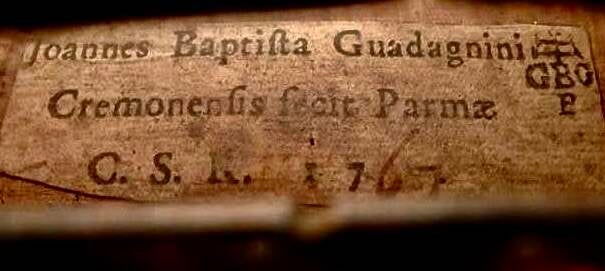 Joannes Baptiſta Guadagnini
GBG
P
Cremonenſis fecit Parmæ
C. S. R. 176